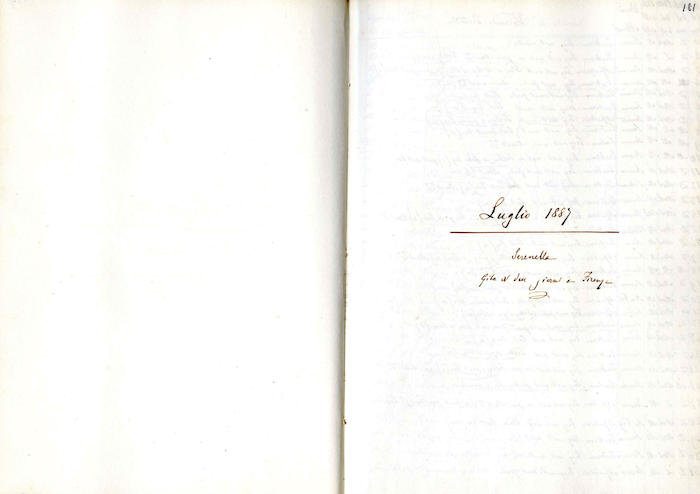 181
Luglio 1887
Serenella
Gita di due giorni a Firenze